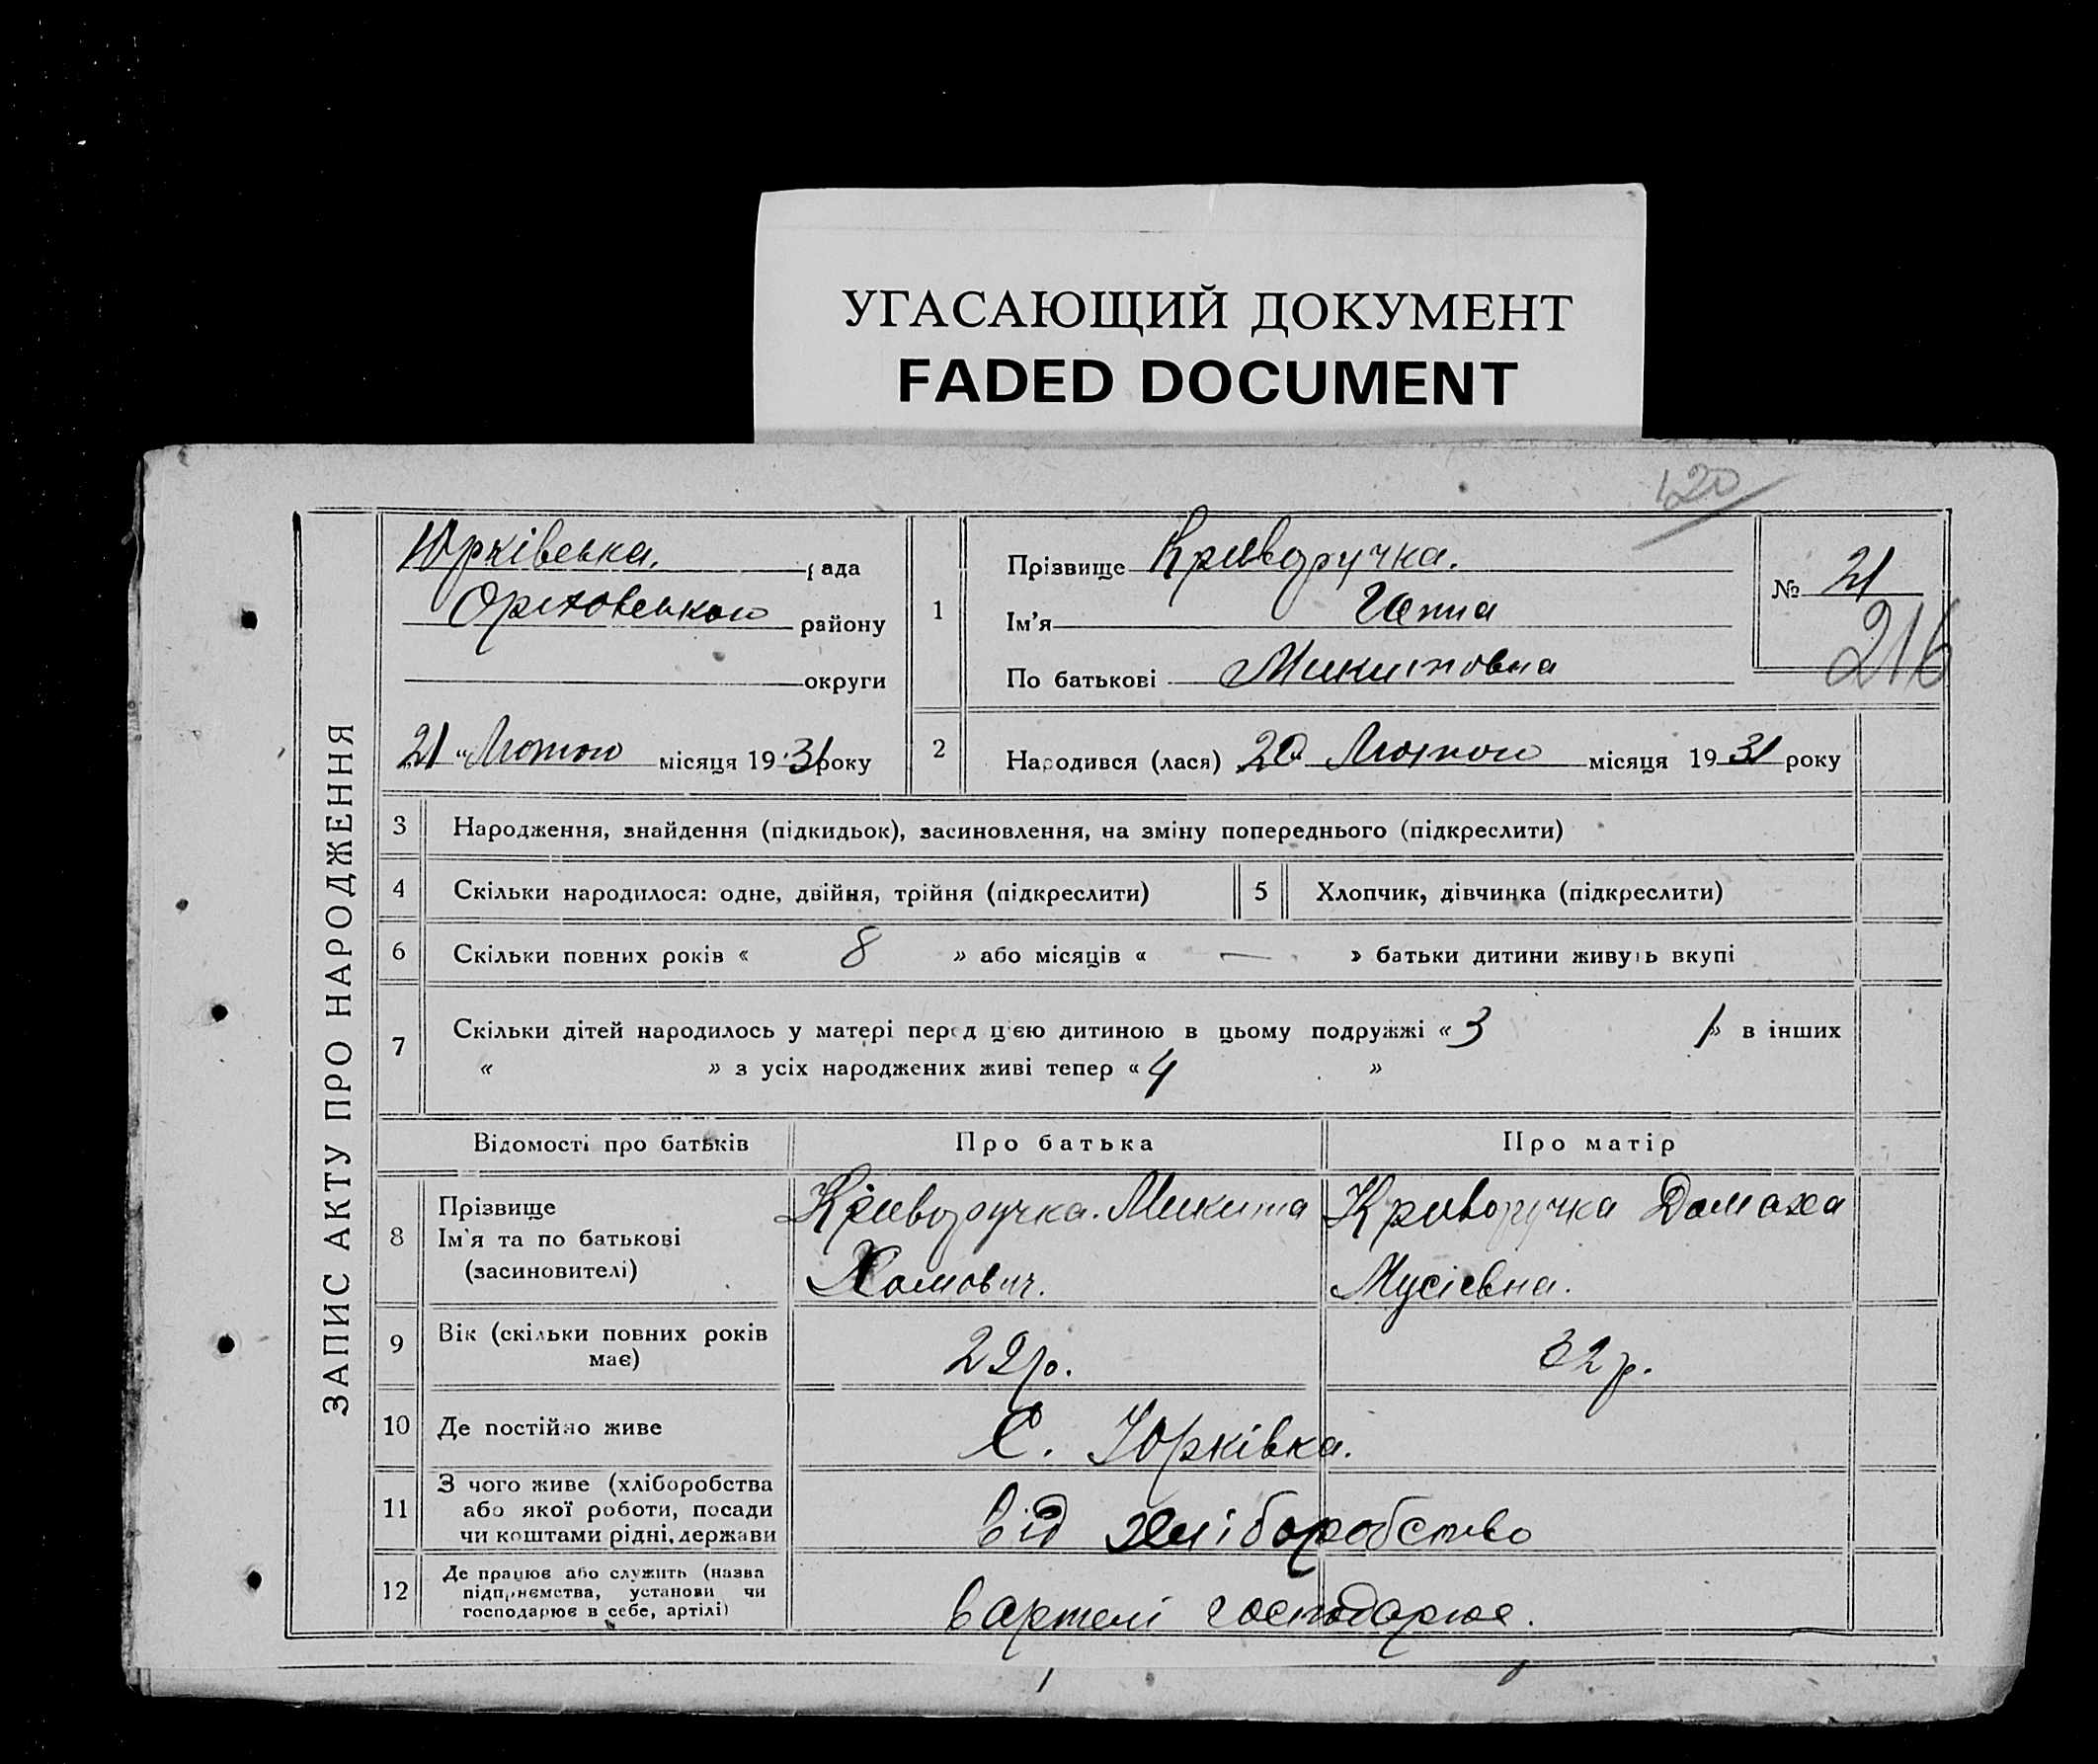 УГАСАЮЩИЙ ДОКУМЕНТ
FADED DOCUMENT
120
ЗАПИС АКТУ ПРО НАРОДЖЕННЯ
Юрківська. рада
Оріховського району
округи
21 "Лютого місяця 1931 року
1
Прізвище Криворучка.
Ім'я Ганна
По батькові Микитовна
№ 21
216
2
Народився (лася) 20 Лютого місяця 1931 року
3 Народження, знайдення (підкидьок), засиновлення, на зміну попереднього (підкреслити)
4 Скільки народилося: одне, двійня, трійня (підкреслити) 5 Хлопчик, дівчинка (підкреслити)
6 Скільки повних років « 8 » або місяців « — » батьки дитини живуть вкупі
7 Скільки дітей народилось у матері перед цією дитиною в цьому подружжі « 3 1 » в інших
« » з усіх народжених живі тепер « 4 »
Відомості про батьків Про батька Про матір
8 Прізвище
Ім'я та по батькові
(засиновителі)
Криворучка. Микита
Хомович.
Криворучка Домаха
Мусіевна.
9 Вік (скільки повних років
має)
29р. 32р.
10 Де постійно живе С. Юрківка.
11 З чого живе (хліборобства
або якої роботи, посади
чи коштами рідні, держави
від хліборобство
12 Де працює або служить (назва
підприємства, установи чи
господарює в себе, артілі)
в артелі господарює.